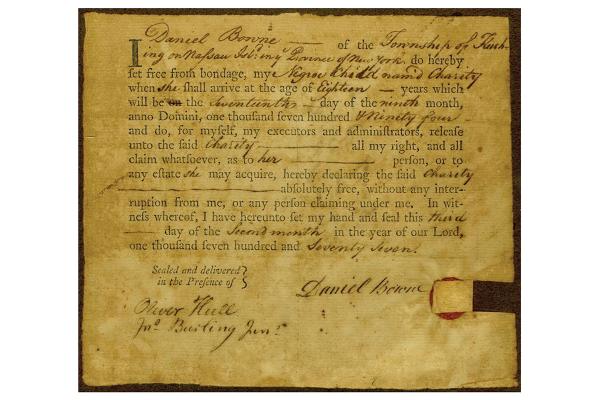 I Daniel Bowne — of the Township of Flush-
ing on Nassau Isld. in ye Province of New York do hereby
set free from bondage, my Negroe Child namd Charity
when she shall arrive at the age of Eighteen — years which
will be on the Seventeenth — day of the ninth month,
anno Domini, one thousand seven hundred & Ninety four —
and do, for myself, my executors and administrators, release
unto the said Charity — all my right, and all
claim whatsoever, as to her — person, or to
any estate she may acquire, hereby declaring the said Charity
— absolutely free, without any inter-
ruption from me, or any person claiming under me. In wit-
ness whereof, I have hereunto set my hand and seal this third
— day of the Second month in the year of our Lord,
one thousand seven hundred and Seventy Seven.
Sealed and delivered
in the Presence of
Daniel Bowne
Oliver Hull
Jno. Burling Junr.